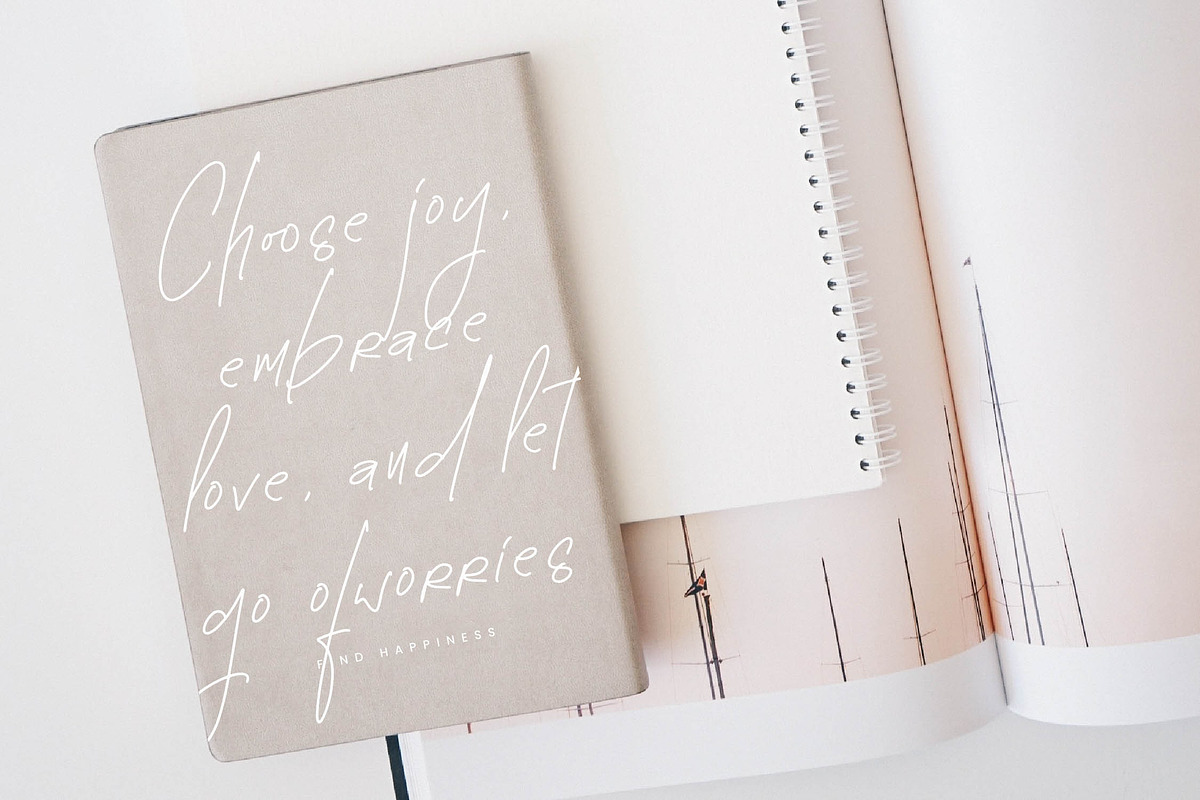 Choose joy,
embrace
love, and let
go of worries
FIND HAPPINESS